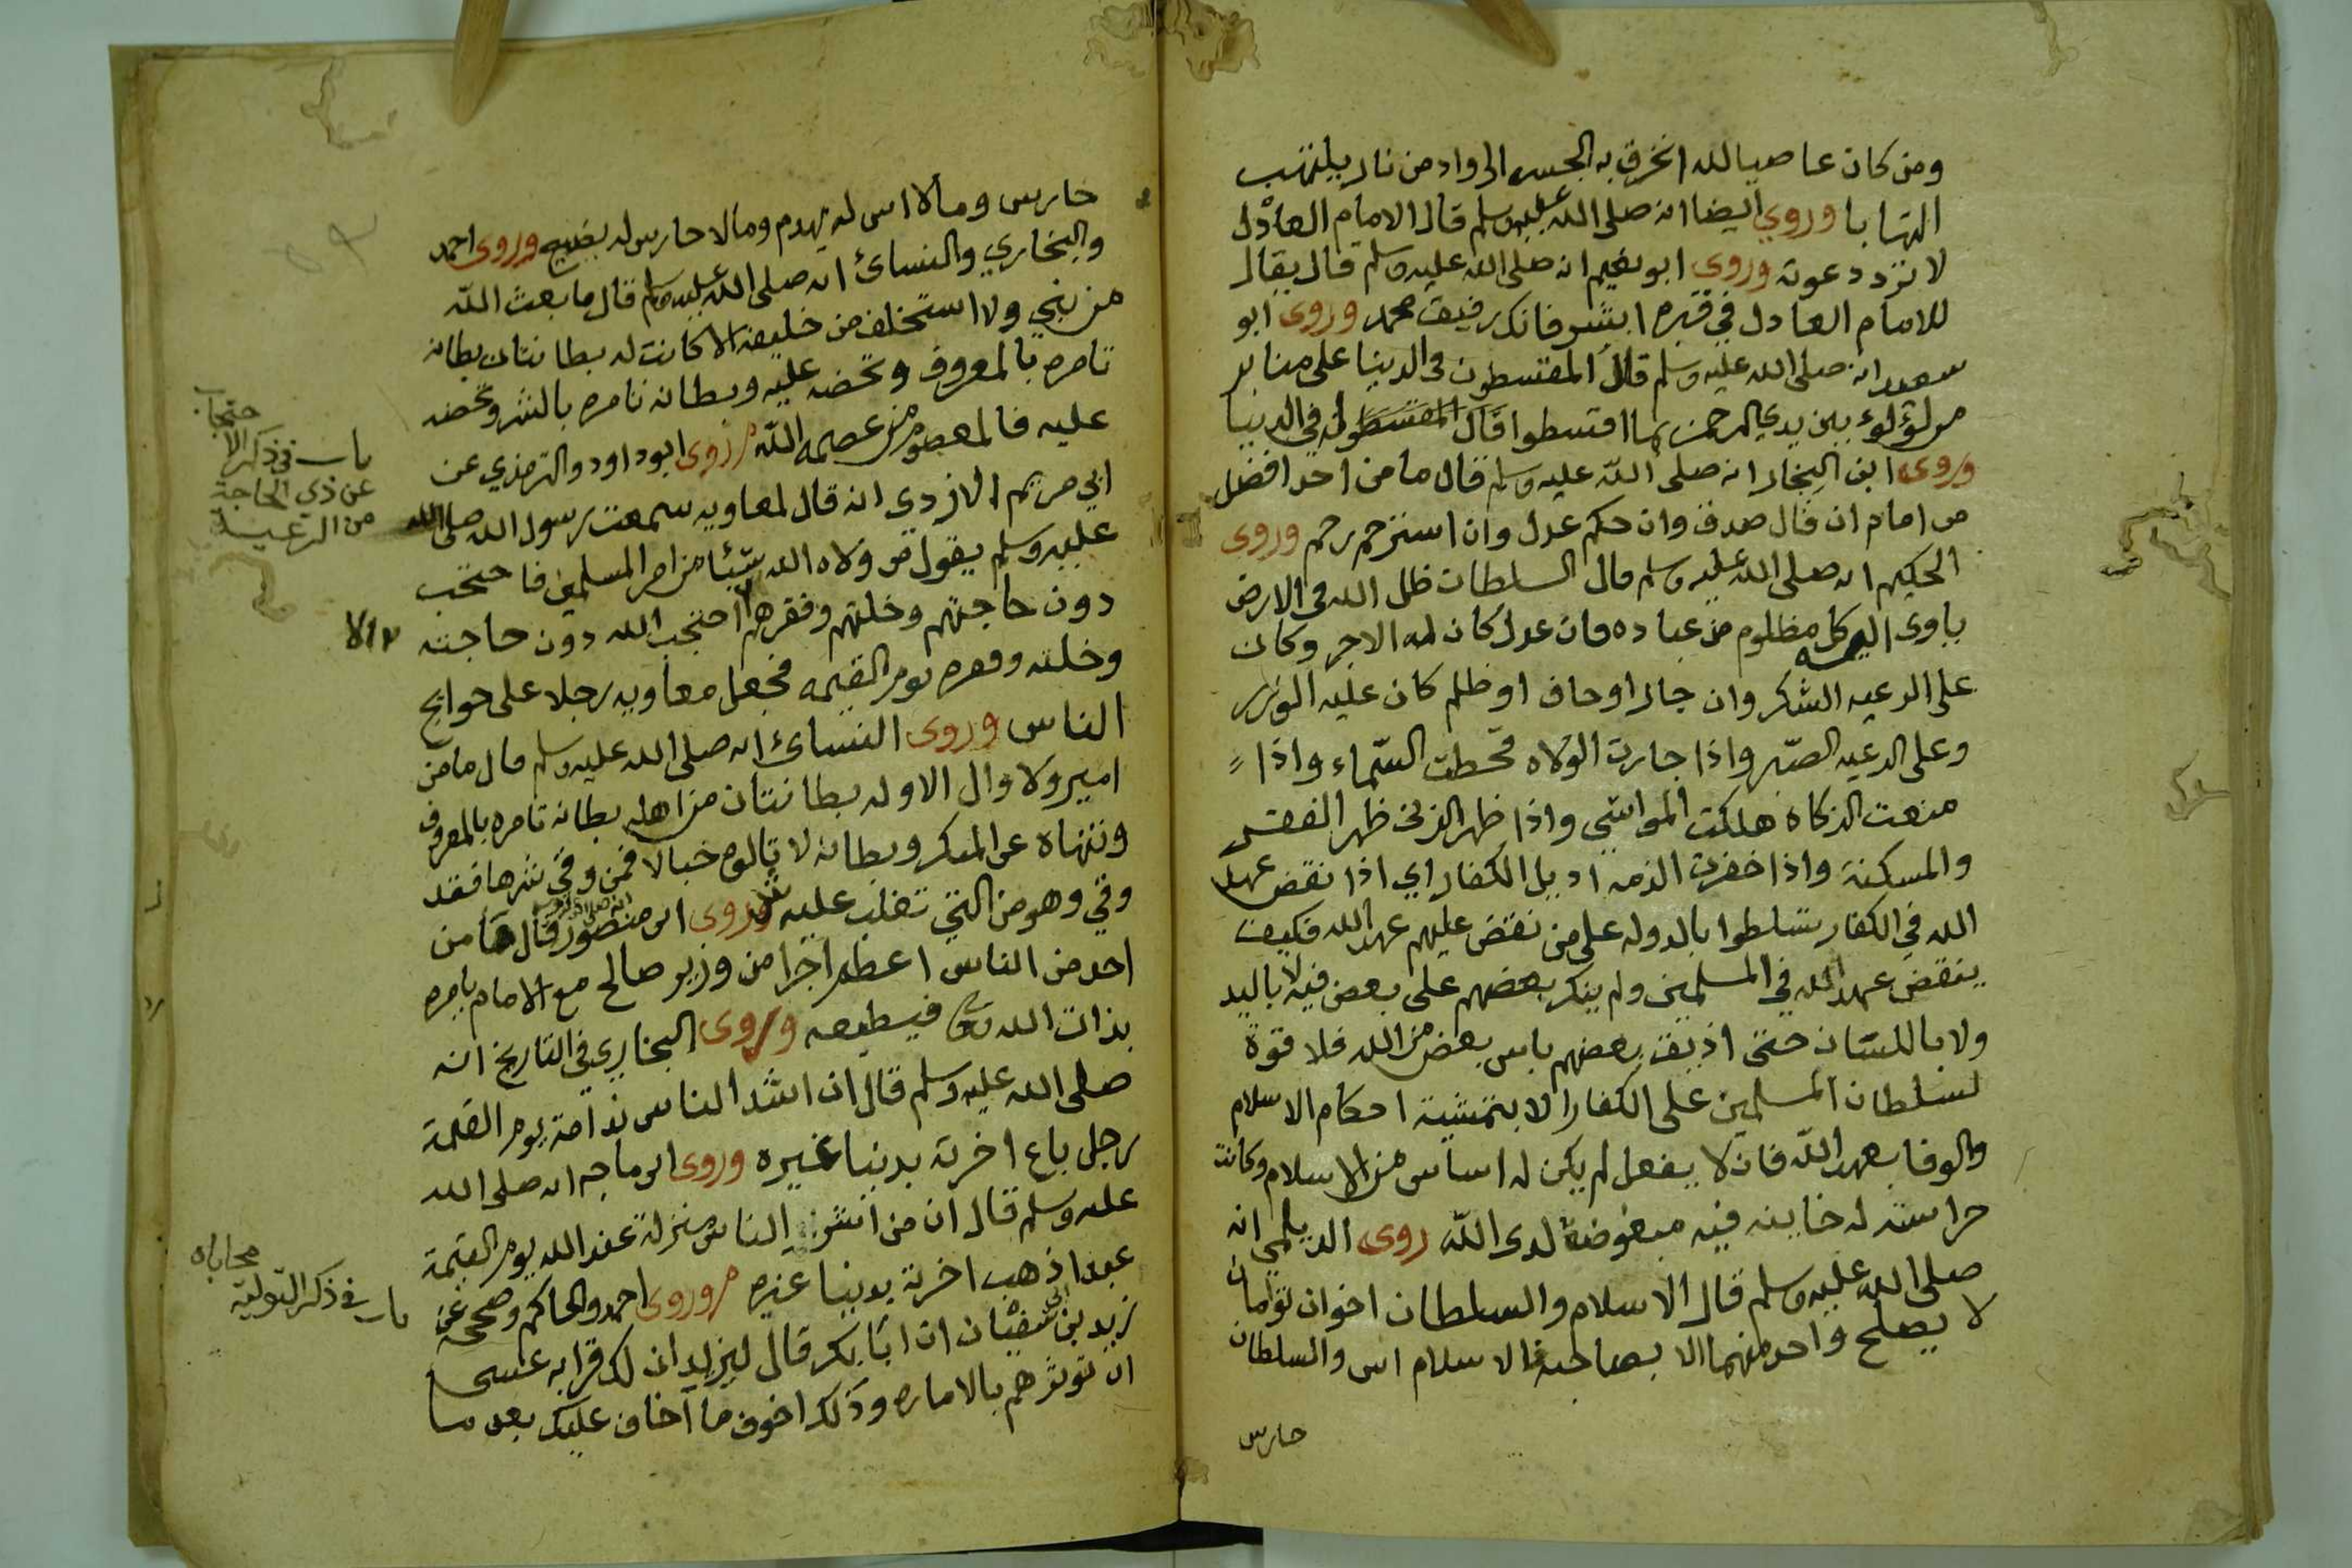 ومن كان عاصيا لله انخرق به الجسر الى واد من نار يلتهب
التهابا وروي ايضا انه صلى الله عليه وسلم قال الامام العادل
لا ترد دعوته وروي ابو نعيم انه صلى الله عليه وسلم قال يقال
للامام العادل في قبره ابشر فانك رفيق محمد وروى ابو
سعيد انه صلى الله عليه وسلم قال المقسطون في الدنيا على منابر
من لؤلؤ بين يدي الرحمن بما اقسطوا قال المقسطون في الدنيا
وروى ابن النجار انه صلى الله عليه وسلم قال ما من احد افضل
من امام ان قال صدق وان حكم عدل وان استرحم رحم وروى
الحكيم انه صلى الله عليه وسلم قال السلطان ظل الله في الارض
ياوى اليه كل مظلوم من عباده فان عدل كان له الاجر وكان
على الرعيه الشكر وان جار او حاف او ظلم كان عليه الوزر
وعلى الرعيه الصبر واذا جارت الولاه قحطت السماء واذا
منعت الزكاه هلكت المواشي واذا ظهر الزنى ظهر الفقر
والمسكنة واذا خفرت الذمه اديل الكفار اي اذا نقض عهد
الله في الكفار تسلطوا بالدوله على من نقض عليهم عهد الله فكيف
ينقض عهد الله في المسلمين ولم ينكر بعضهم على بعض فيه لا باليد
ولا باللسان حتى اذيق بعضهم باس بعض من الله فلا قوة
لسلطان المسلمين على الكفار الا بتمشية احكام الاسلام
والوفا بعهد الله فان لا يفعل لم يكن له اساس من الاسلام وكانت
حراسته له خاينه فيه مبغوضة لدى الله روى الديلمي انه
صلى الله عليه وسلم قال الاسلام والسلطان اخوان توامان
لا يصلح واحد منهما الا بصاحبه فالاسلام اس والسلطان
حارس
حارس ومالا اس له يهدم ومالا حارس له يضيع وروى احمد
والبخاري والنسائ انه صلى الله عليه وسلم قال ما بعث الله
من نبي ولا استخلف من خليفه الا كانت له بطانتان بطانه
تامره بالمعروف وتحضه عليه وبطانه تامره بالشر وتحضه
عليه فالمعصوم من عصمه الله وروى ابو داود والترمذي عن
ابي مريم الازدي انه قال لمعاويه سمعت رسول الله صلى الله
عليه وسلم يقول من ولاه الله شيئا من امر المسلمين فاحتجب
دون حاجتهم وخلتهم وفقرهم احتجب الله دون حاجته
وخلته وفقره يوم القيمه فجعل معاويه رجلا على حوايج
الناس وروى النسائ انه صلى الله عليه وسلم قال ما من
امير ولا وال الا وله بطانتان من اهله بطانه تامره بالمعروف
وتنهاه عن المنكر وبطانه لا تالوه خبالا فمن وقي شرها فقد
وقي وهو من التي تغلب عليه وروى ابن منصور قال ما من
احد من الناس اعظم اجرا من وزير صالح مع الامام يامره
بذات الله فيطيعه وروى البخاري في التاريخ انه
صلى الله عليه وسلم قال ان اشد الناس ندامة يوم القيمة
رجل باع اخرته بدنيا غيره وروى ابن ماجه انه صلى الله
عليه وسلم قال ان من اشر الناس منزلة عند الله يوم القيمة
عبدا ذهب اخرته بدنيا غيره وروى احمد والحاكم وصححه عن
يزيد بن ابي سفيان ان ابا بكر قال ليزيد ان لك قرابه عسى
ان توثرهم بالاماره وذلك اخوف ما اخاف عليك بعد ما
باب في ذكر الاحتجاب
عن ذي الحاجة
من الرعية
باب في ذكر التولية محاباه